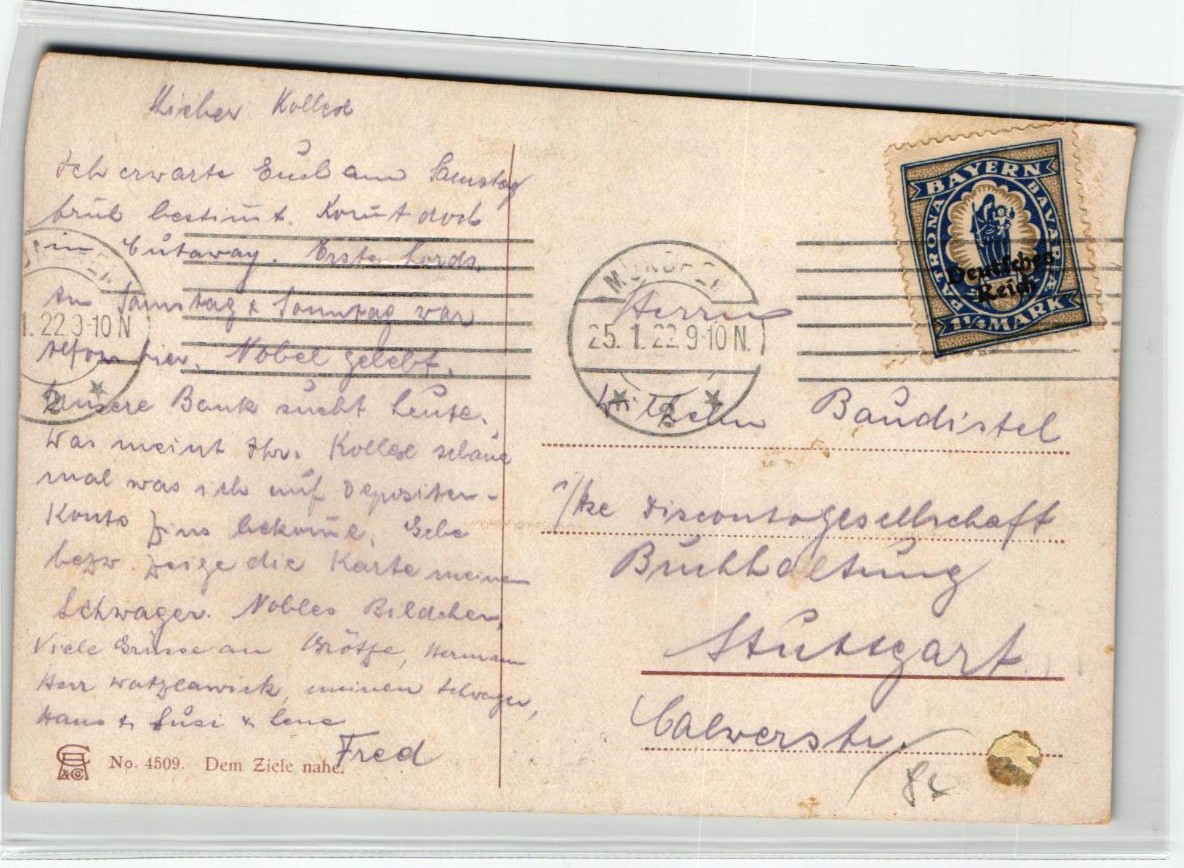 Lieber Kolleg
Ich erwarte Euch am Samstag
früh bestimt. Komt doch
im Cutaway. Erste Lords.
Am Samstag & Sonntag war
hier. Nobel gelebt.
Unsere Bank sucht heute.
Was meint Ihr. Kolleg schaue
mal was ich auf Depositen-
Konto Zins bekome. Gebe
bezw. zeige die Karte meinem
Schwager. Nobles Bildchen,
Viele Grüsse an Hermann
Herr Watzlawick, meinen Schwager,
Hans & Susi & Lene
Fred
No. 4509. Dem Ziele nahe.
MÜNCHEN
1.22 9-10 N
2
MÜNCHEN
25.1.22.9-10 N.
2
PATRONA BAYERN BAVARIAE
Deutsches
Reich
1½ MARK
Herrn
Wilhelm Baudistel
Discontogesellschaft
Buchhaltung
Stuttgart.
Calwerstr.